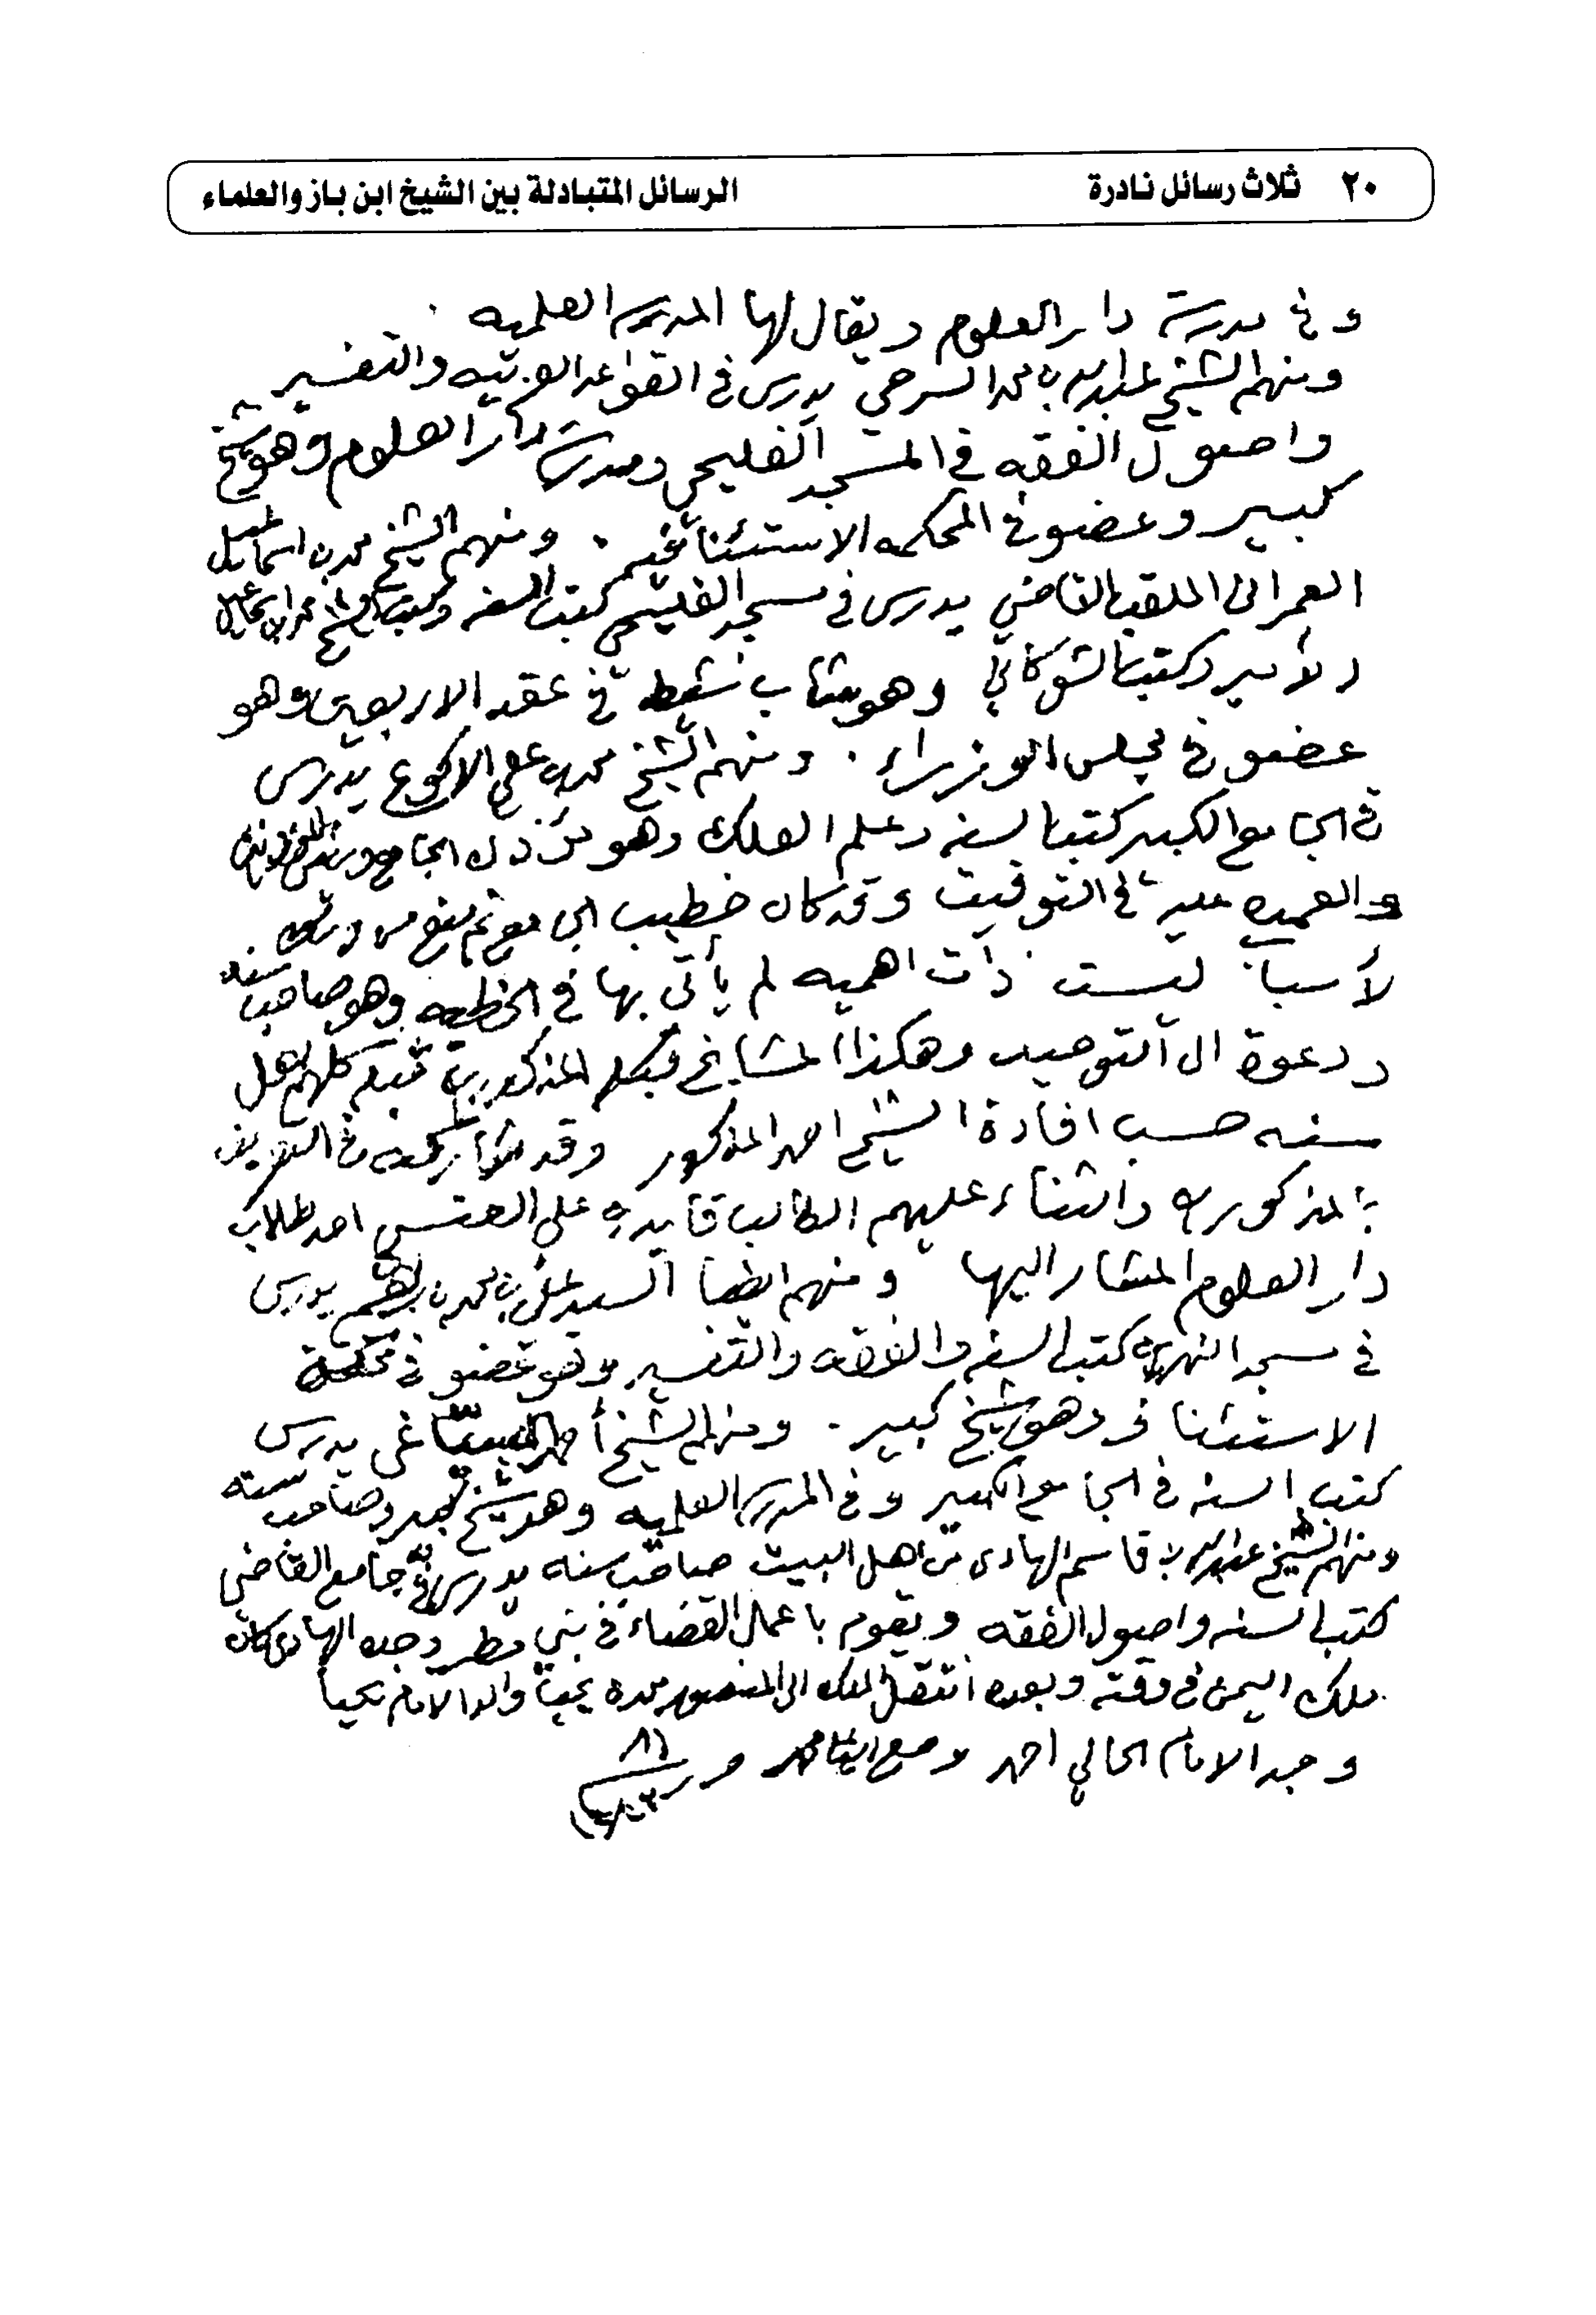 ٢٠ ثلاث رسائل نادرة الرسائل المتبادلة بين الشيخ ابن باز والعلماء
وفي مدرسة دار العلوم ويقال لها المدرسه العلميه
ومنهم الشيخ عبدالله بن محمد السرحي يدرس في القواعد العربيه والتفسير
واصول الفقه في المسجد الفليحي ومدرسة دار العلوم وهو شيخ
كبير وعضو في المحكمه الاستئنافيه. ومنهم الشيخ محمد بن اسماعيل
العمراني الملقب القاضي يدرس في مسجد الفليحي كتب السنه وكتب الشيخ محمد بن اسماعيل
الأمير وكتب الشوكاني وهو شاب نشيط في عقد الاربعين وهو
عضو في مجلس الوزراء. ومنهم الشيخ محمد بن علي الاكوع يدرس
في الجامع الكبير كتب السنه وعلم الفلك وهو مؤذن الجامع
والعمده عليه في التوقيت وقد كان خطيب الجامع ثم منع من ذلك
لأسباب ليست ذات اهميه لم يأتي بها في الخطبه وهو صاحب سنه
ودعوة الى التوحيد وهكذا المشايخ المذكورين قبله كلهم اهل
سنه حسب افادة الشيخ احمد المذكور وقد شاركه في التعريف
بالمذكورين والثناء عليهم الطالب قايد بن علي العنسي احد طلاب
دار العلوم المشار اليها ومنهم ايضا السيد علي بن محمد بن ابراهيم يدرس
في مسجد النهرين كتب السنه والفقه والتفسير وهو عضو في محكمة
الاستئناف وهو شيخ كبير. ومنهم الشيخ أحمد السياغي يدرس
كتب السنه في الجامع الكبير وفي المدرسه العلميه وهو شيخ كبير وصاحب سنه
ومنهم الشيخ عبدالله بن قاسم الهادي من اهل البيت صاحب سنه يدرس في جامع القاضي
كتب السنه واصول الفقه ويقوم باعمال القضاء في بني مطر وجده الهادي كان
ملك اليمن في وقته وبعده انتقل الملك الى المنصور محمد يحيا والد الامام يحيا
وجد الامام الحالي احمد